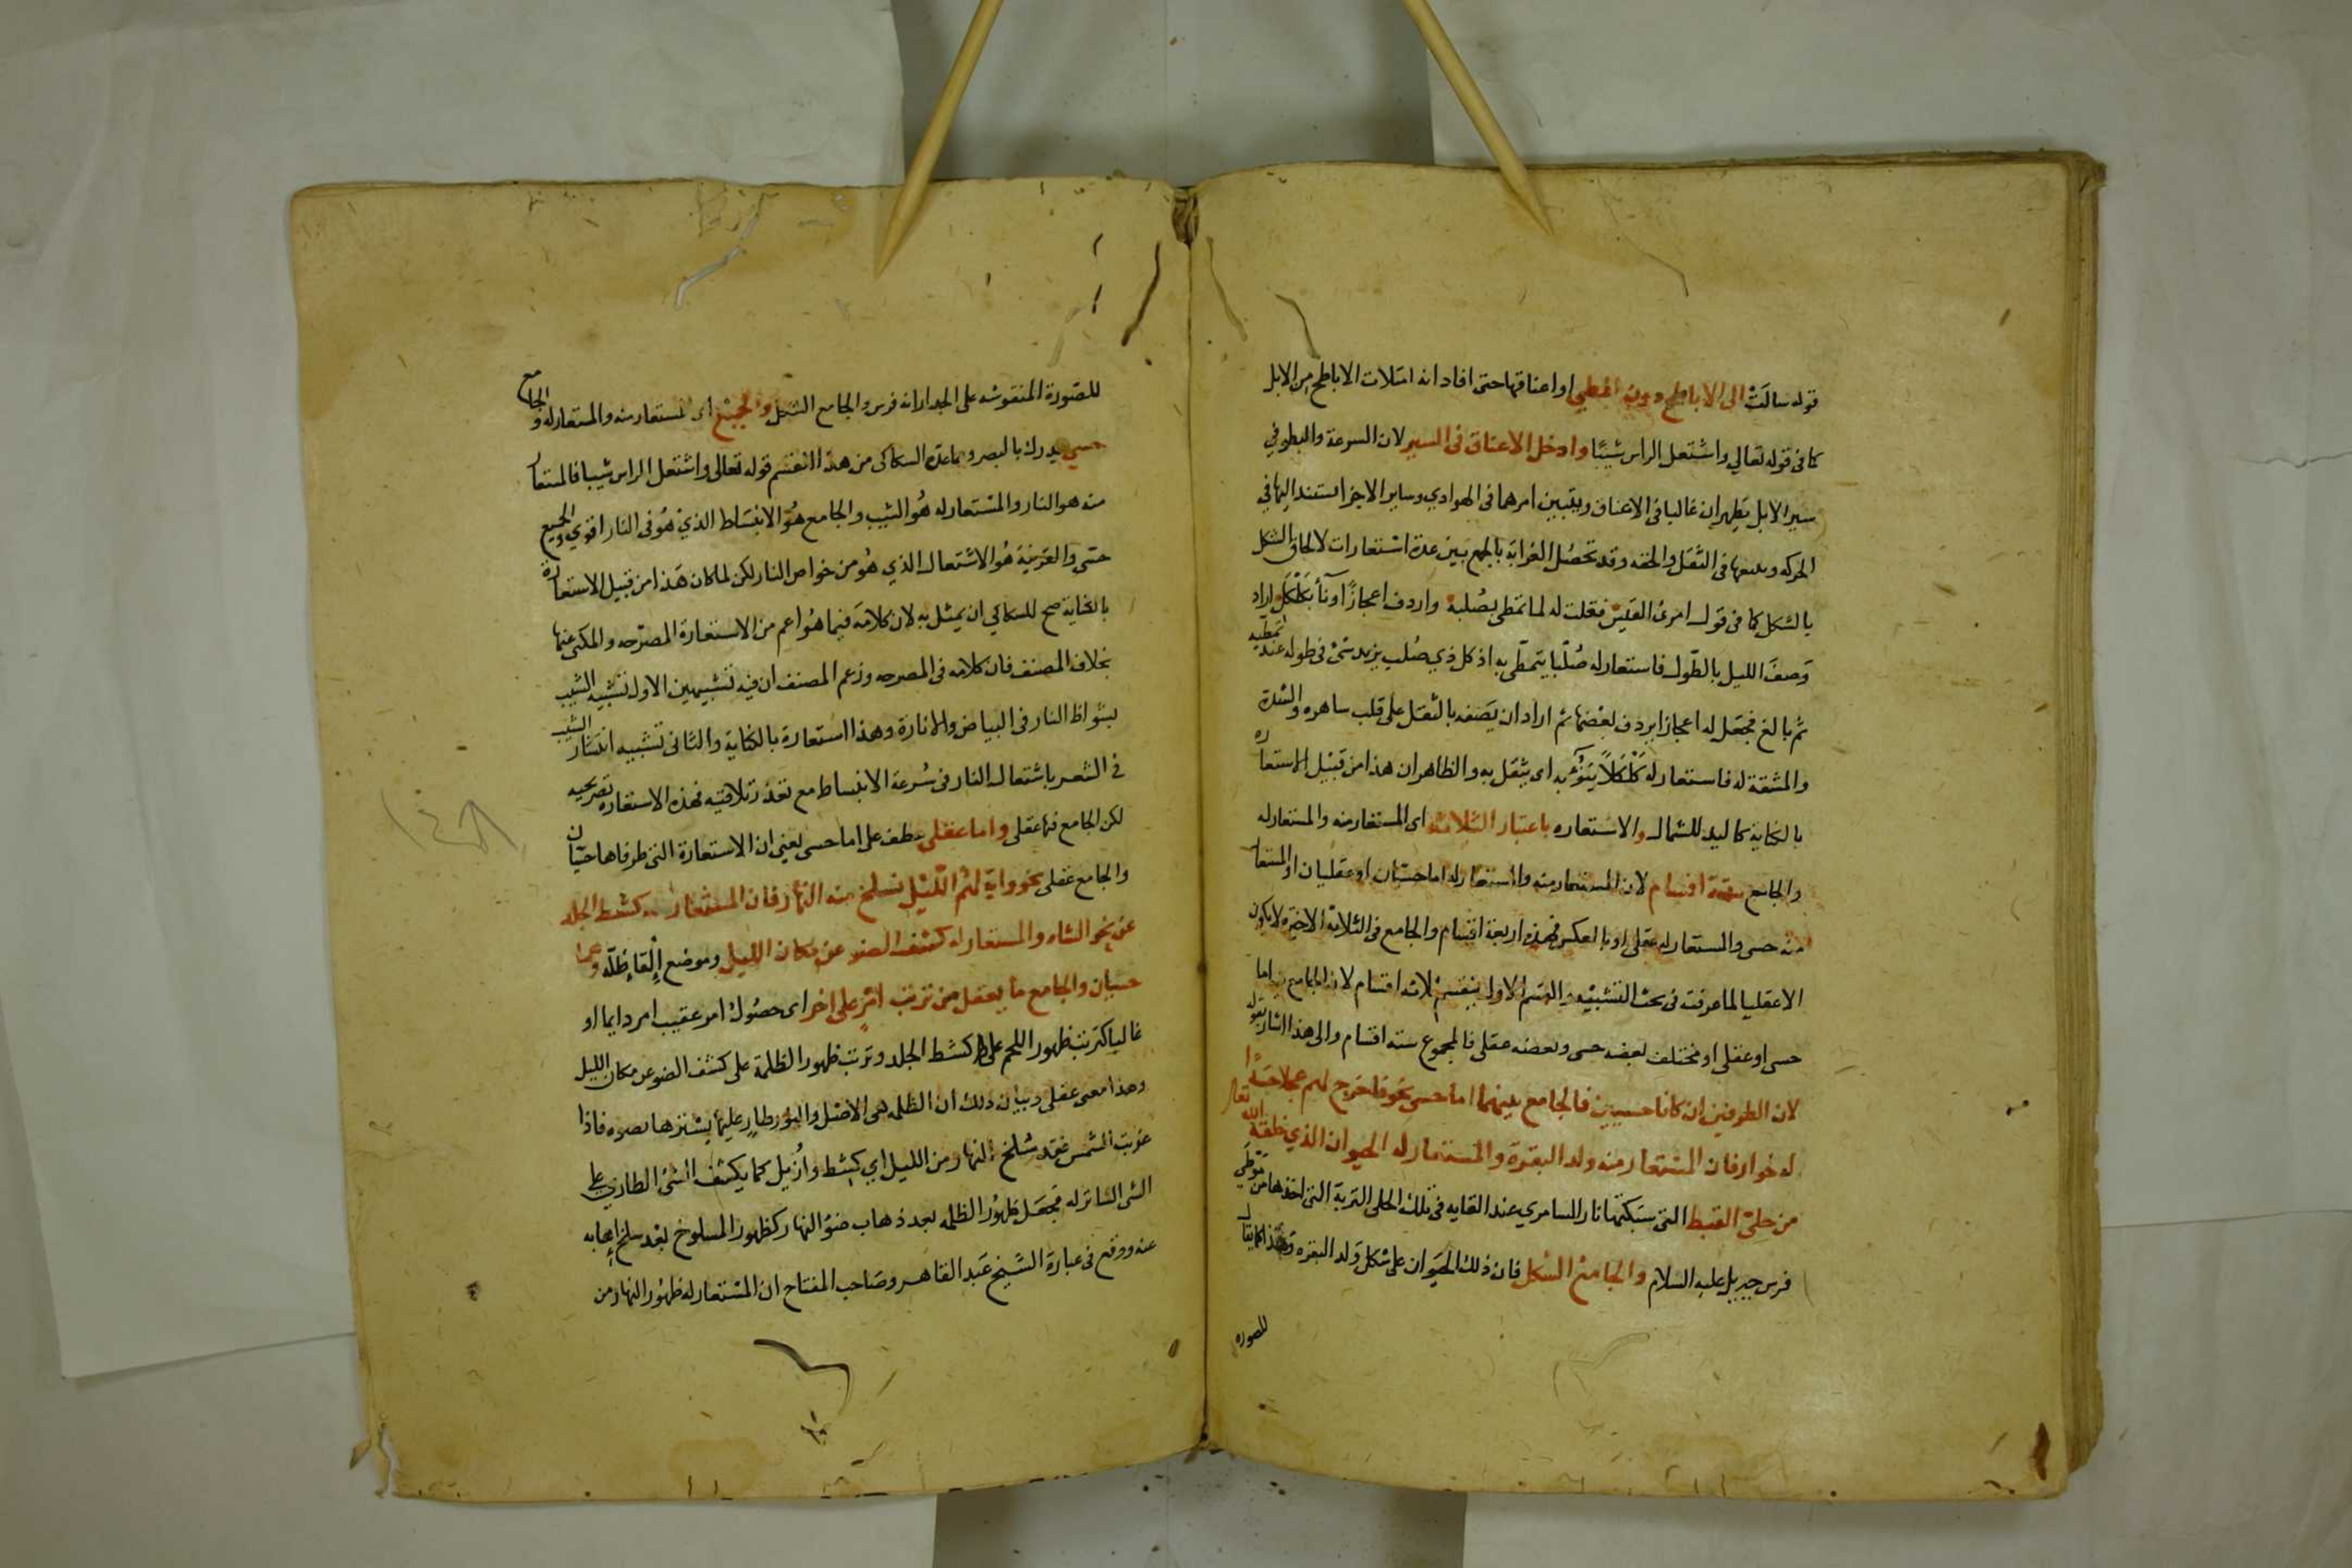 قوله سالت الى الاباطح دون المطي او اعناقها حتى افاد انه امتلات الاباطح من الابل
كما فى قوله تعالي واشتعل الراس شيبًا وادخل الاعناق فى السير لان السرعة والبطو في
سير الابل يظهران غالبا فى الاعناق ويتبين امرهما فى الهوادي وساير الاجزا تستند اليها في
الحركه وتتبعها فى الثقل والخفه وقد تحصل الغرابة بالجمع بين عدة استعارات لالحاق الشكل
بالشكل كما فى قول امرئ القيس فقلت له لما تمطى بصُلبه واردف اعجازًا وناء بكلكل اراد
وَصفَ الليل بالطّول فاستعار له صُلبًا يتمطّى به اذ كل ذي صُلب يزيد شئ فى طوله عند تمطيه
ثم بالغ فجعَل له اعجازا يردف بعضها ثم اراد ان يَصفه بالثقل على قلب ساهره والشدة
والمشقة له فاستعار له كَلْكَلاً يَنُوْء به اى يثقل به والظاهر ان هذا من قبيل الاستعاره
بالكناية كاليد للشمال والاستعاره باعتبار الثلاثة اى المستعار منه والمستعار له
والجامع ستة اقسام لان المستعار منه والمستعار له اما حسيّان او عقليان او المستعار
منه حسى والمستعار له عقلى او بالعكس فهذه اربعة اقسام والجامع فى الثلاثة الاخيره لا يكون
الا عقليا لما عرفت فى بحث التشبيه والقسم الاول ينقسم ثلاثه اقسام لان الجامع فيه اما
حسى او عقلى او مختلف بعضه حسى وبعضه عقلى فالمجموع ستة اقسام والى هذا اشار بقوله
لان الطرفين ان كانا حسيين فالجامع بينهما اما حسى نحو فاخرج لهم عجلا جسدًا
له خوار فان المستعار منه ولد البقرة والمستعار له الحيوان الذي خلقه الله تعالى
من حلىّ القبط التى سبكتها نار السامري عند القايه فى تلك الحلى التربة التى اخذها من موطى
فرس جبريل عليه السلام والجامع الشكل فان ذلك الحيَوان على شكل وَلد البقره وهذا كما يقال
للصوره
للصّورة المنقوشه على الجدار انه فرس والجامع الشكل والجميع اى المستعار منه والمستعار له والجامع
حسي يدرك بالبصر ومما عدّه السكاكى من هذا القسم قوله تعالى واشتعل الراس شيبا فالمستعار
منه هو النار والمستعار له هُو الشيب والجامع هُو الانبسَاط الذي هُو فى النار اقوي والجميع
حسّى والقرينة هُو الاشتعال الذي هُو من خواص النار لكن لما كان هَذا من قبيل الاستعارة
بالكناية صح للسكاكي ان يمثل به لان كلامَه فيما هُو اعم من الاستعارة المصرّحه والمكنى عنها
بخلاف المصنف فان كلامه فى المصرحه وزعم المصنف ان فيه تشبيهين الاول تشبيه الشيب
بشواظ النار فى البياض والانارة وهذا استعارة بالكناية والثانى تشبيه انتشار الشيب
في الشعر باشتعال النار فى سُرعة الانبساط مع تعذر تلافيه فهذه الاستعاره تصريحيه
لكن الجامع فيها عقلى واما عقلى عطف على اما حسى يعنى ان الاستعارة التى طرفاها حسّيان
والجامع عقلى نحو واية لهُم الليْل نسلخ منه النهار فان المستعار منه كشط الجلد
عن نحو الشاه والمستعار له كشف الضو عن مكان الليل وموضع اِلْقاءِ ظلّه وهما
حسيان والجامع ما يعقل من ترتب امر على اخر اى حصُول امر عقيب امر دايما او
غالبا كترتب ظهور اللحم على كشط الجلد وترتب ظهور الظلمة على كشف الضو عن مكان الليل
وهذا معنى عقلى وبيان ذلك ان الظلمه هى الاصْل والنوْر طارٍ عليها يسْترها بضوه فاذا
غربت الشمس فقد سُلخ النهار من الليل اي كشط وازيل كما يكشف الشئ الطاري على
الشى الساتر له فجعَل ظهُور الظلمه بعد ذهاب ضوْ النهار كظهور المسلوخ بعْد سلخ اهابه
عنه ووقع فى عبارة الشيخ عَبد القاهر وصَاحب المفتاح ان المُسْتعار له ظهُور النهار من